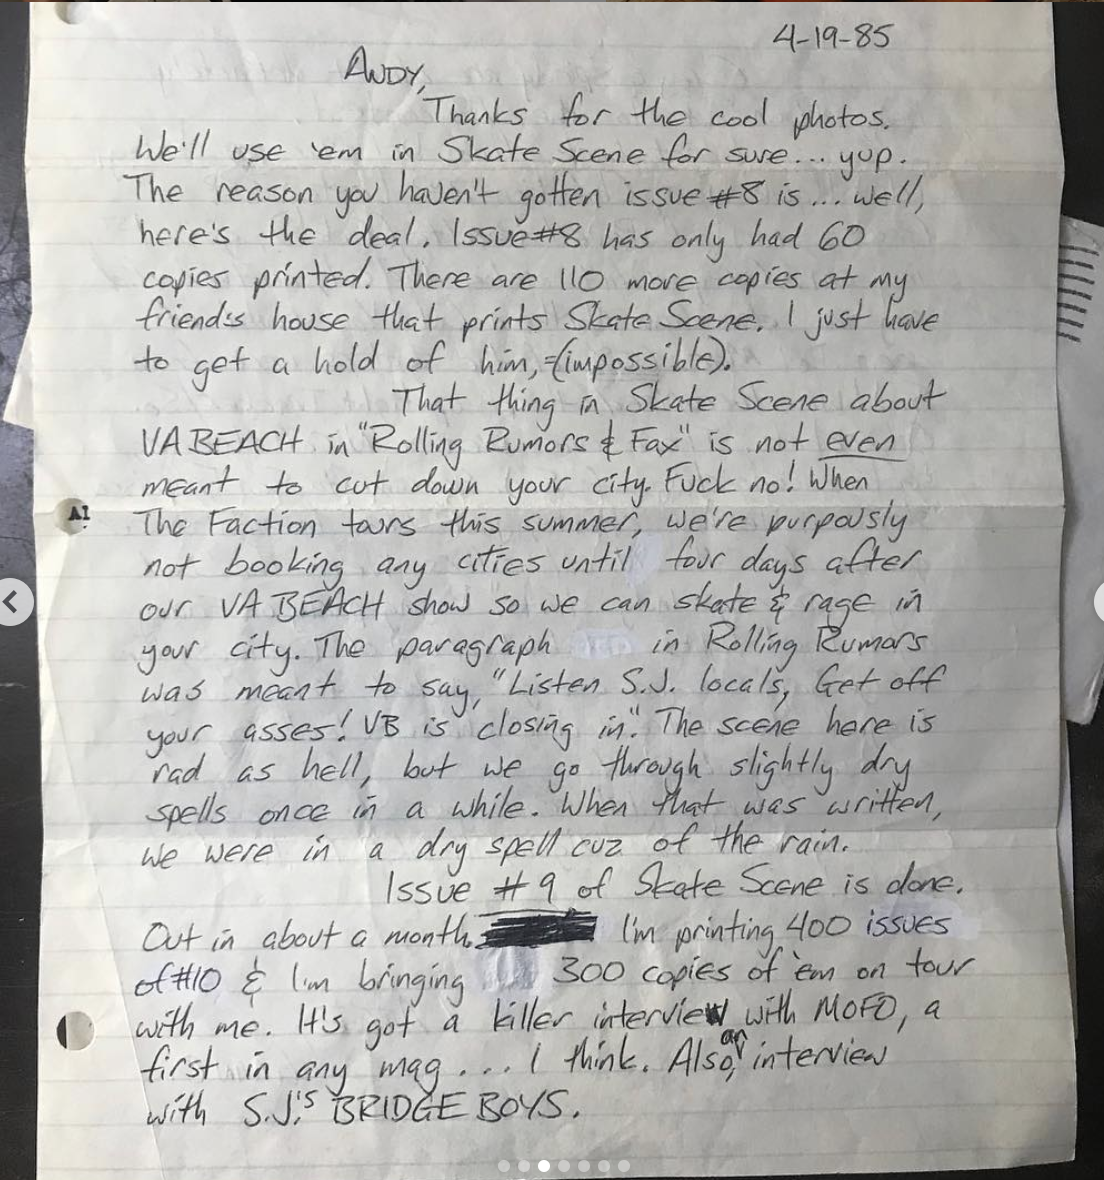 4-19-85
ANDY,
Thanks for the cool photos.
We'll use 'em in Skate Scene for sure... yup.
The reason you haven't gotten issue #8 is... well,
here's the deal. Issue #8 has only had 60
copies printed. There are 110 more copies at my
friend's house that prints Skate Scene. I just have
to get a hold of him, =(impossible).
That thing in Skate Scene about
VA BEACH in "Rolling Rumors & Fax" is not even
meant to cut down your city. Fuck no! When
The Faction tours this summer, we're purpously
not booking any cities until four days after
our VA BEACH show so we can skate & rage in
your city. The paragraph in Rolling Rumors
was meant to say, "Listen S.J. locals, Get off
your asses! VB is closing in". The scene here is
rad as hell, but we go through slightly dry
spells once in a while. When that was written,
we were in a dry spell cuz of the rain.
Issue #9 of Skate Scene is done.
Out in about a month. I'm printing 400 issues
of #10 & I'm bringing 300 copies of 'em on tour
with me. It's got a killer interview with MOFO, a
first in any mag... I think. Also, an interview
with S.J.'s BRIDGE BOYS.